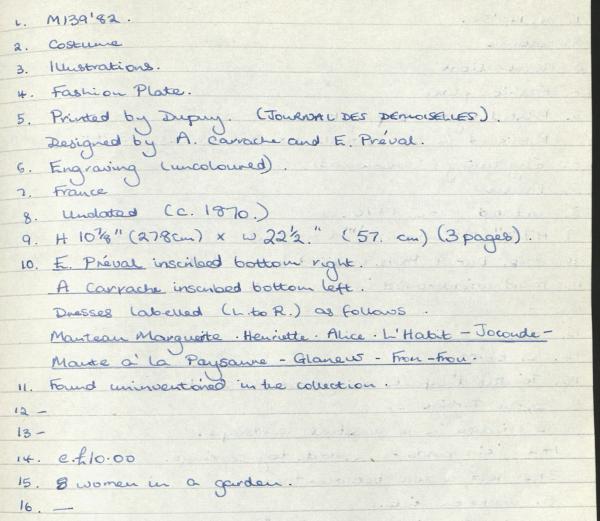 1. M139'82.
2. Costume
3. Illustrations.
4. Fashion Plate.
5. Printed by Dupuy. (JOURNAL DES DEMOISELLES).
Designed by A. Carrache and E. Préval.
6. Engraving (uncoloured).
7. France
8. Undated (c. 1870.)
9. H 10⅞" (278cm) x W 22½." (57. cm) (3 pages).
10. E. Préval inscribed bottom right.
A Carrache inscribed bottom left.
Dresses labelled (L. to R.) as follows.
Manteau Marguerite . Henriette . Alice . L'Habit - Joconde -
Mante a' la Paysanne - Glaneus - Frou-Frou.
11. Found uninventoried in the collection.
12 -
13 -
14. c. £10.00
15. 8 women in a garden.
16. —